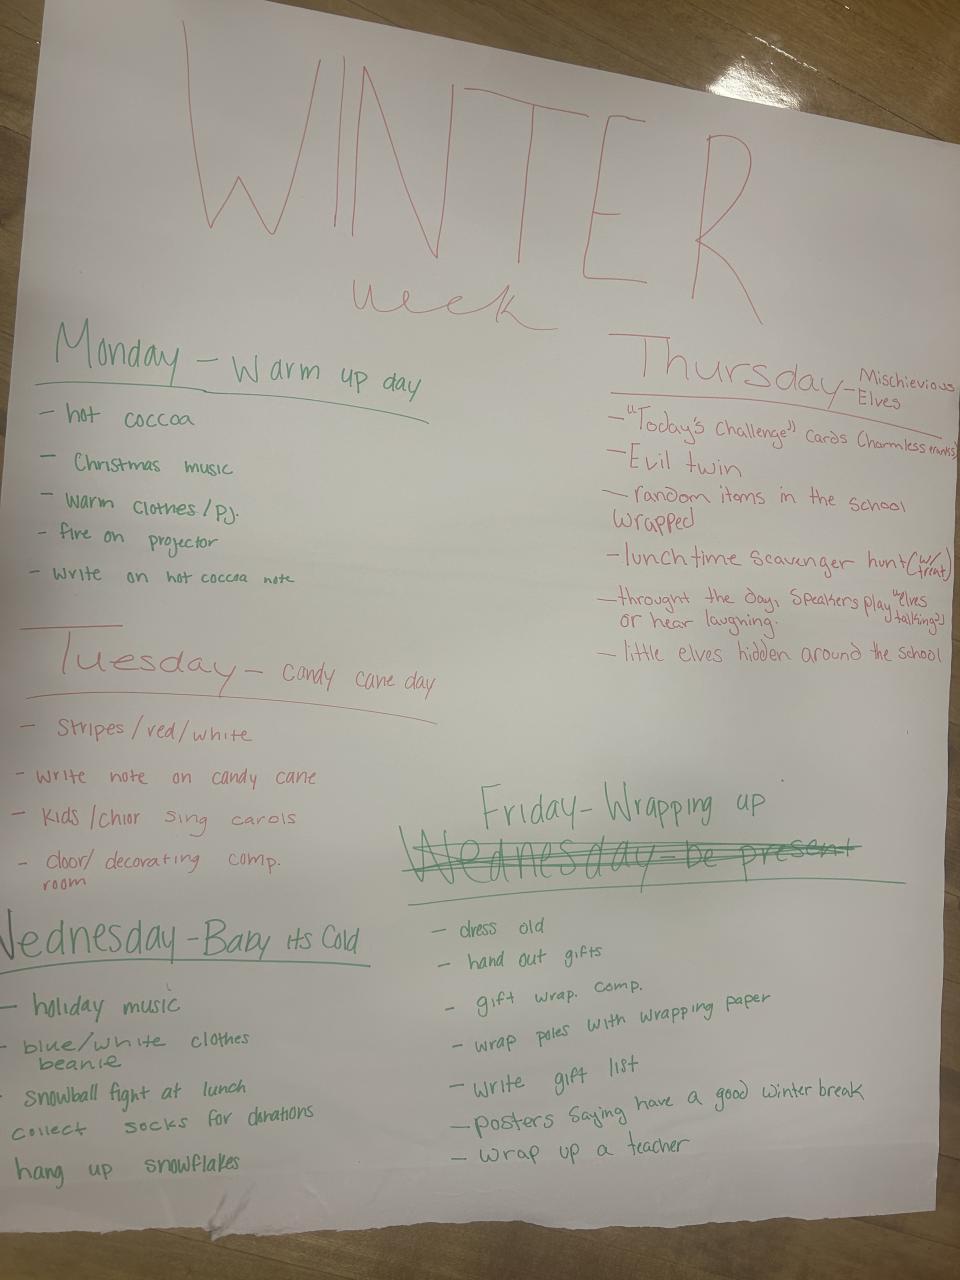 WINTER
week
Monday - Warm up day
- hot coccoa
- Christmas music
- Warm clothes/pj.
- fire on projector
- Write on hot coccoa note
Tuesday - candy cane day
- Stripes/red/white
- Write note on candy cane
- Kids/chior sing carols
- door/decorating comp.
room
Wednesday - Baby its Cold
- holiday music
- blue/white clothes
beanie
- snowball fight at lunch
collect socks for donations
hang up snowflakes
Thursday - Mischievious
Elves
- "Today's challenge" cards Charmless
- Evil twin
- random items in the school
wrapped
- lunchtime scavenger hunt (w/
treat)
- throught the day, speakers play "elves
talking"
or hear laughing.
- little elves hidden around the school
Friday - Wrapping up
Wednesday - be present
- dress old
- hand out gifts
- gift wrap. comp.
- wrap poles with wrapping paper
- write gift list
- posters saying have a good winter break
- wrap up a teacher